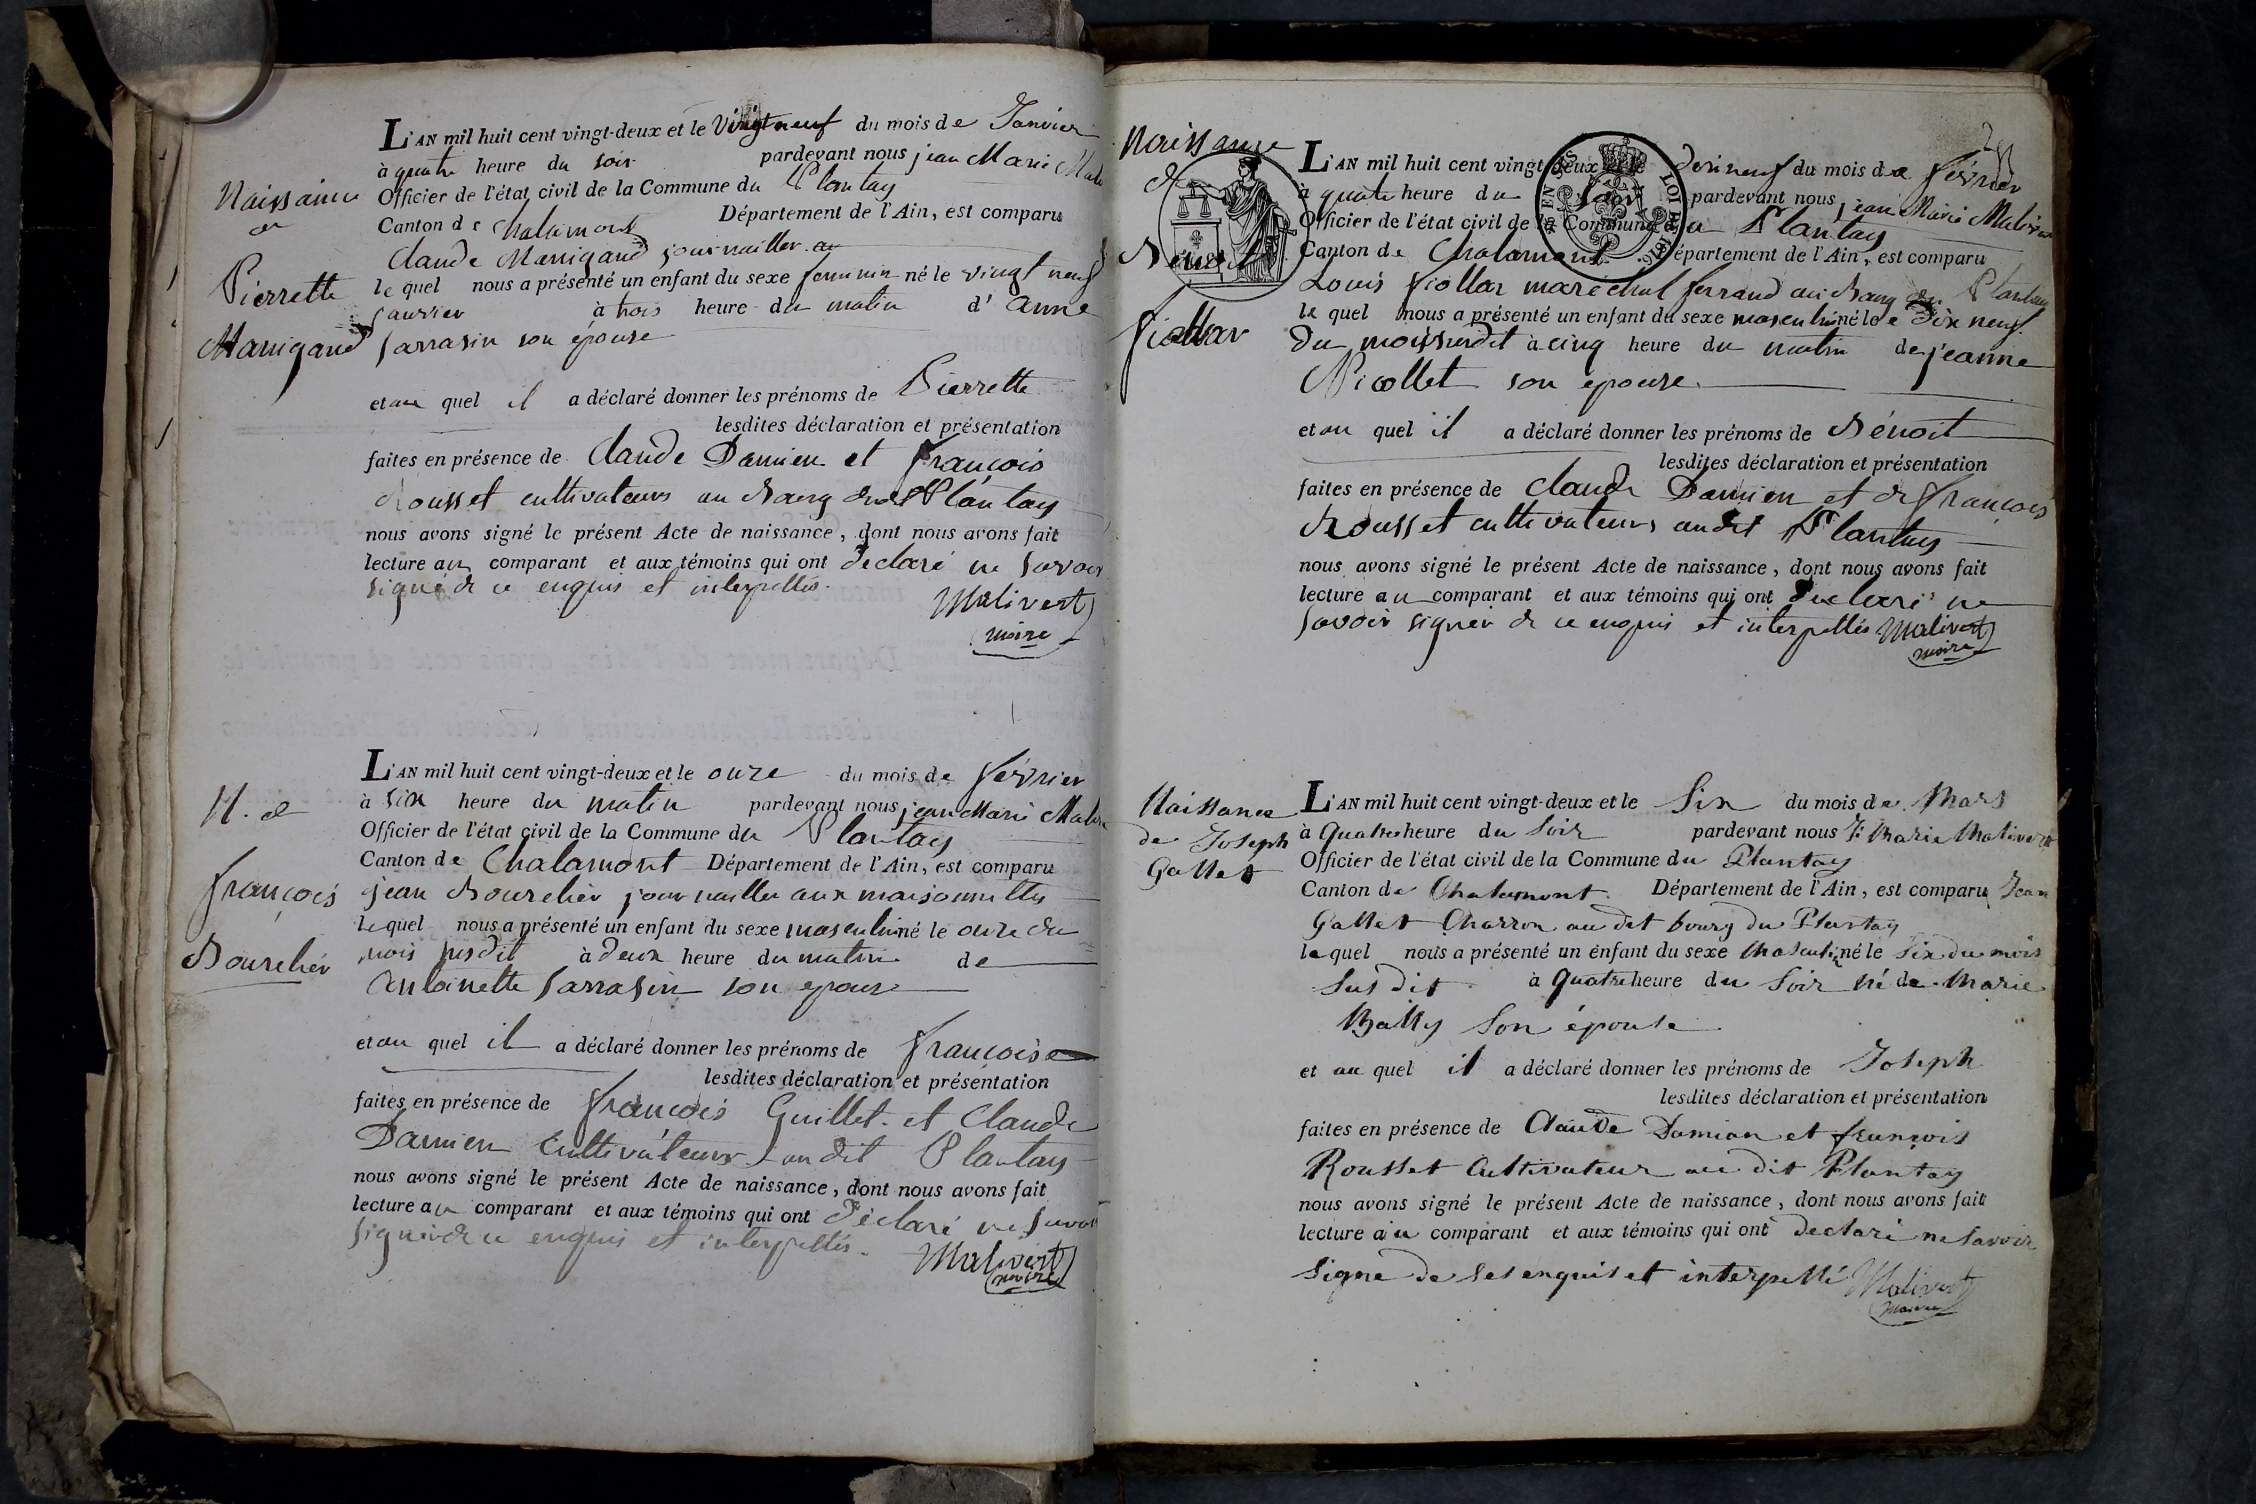 Naissance
de
Pierrette
Manigand
L'AN mil huit cent vingt-deux et le Vingt neuf du mois de Janvier
à quatre heure du soir pardevant nous jean Marie Mali
Officier de l'état civil de la Commune du Plantay
Canton de Chalamont Département de l'Ain, est comparu
Claude Manigand journallier au
le quel nous a présenté un enfant du sexe feminin né le vingt neuf
janvier à trois heure du matin d' anne
Sarrasin son épouse
et au quel il a déclaré donner les prénoms de Pierrette
lesdites déclaration et présentation
faites en présence de Claude Damien et françois
Rousset cultivateurs au Bourg du Plantay
nous avons signé le présent Acte de naissance, dont nous avons fait
lecture au comparant et aux témoins qui ont déclaré ne savoir
signé de ce enquis et interpellés.
Malivert
maire
N. de
françois
Bourelier
L'AN mil huit cent vingt-deux et le onze du mois de février
à six heure du matin pardevant nous jean Marie Malive
Officier de l'état civil de la Commune du Plantay
Canton de Chalamont Département de l'Ain, est comparu
jean Bourelier journallier aux maisonnettes
le quel nous a présenté un enfant du sexe masculin né le onze du
mois susdit à deux heure du matin de
Antoinette Sarrasin son epouse
et au quel il a déclaré donner les prénoms de françois
lesdites déclaration et présentation
faites en présence de françois Guillet et Claude
Damien Cultivateurs au dit Plantay
nous avons signé le présent Acte de naissance, dont nous avons fait
lecture au comparant et aux témoins qui ont déclaré ne savoir
signer de ce enquis et interpellés.
Malivert
maire
Naissance
de
Benoit
fiollar
L'AN mil huit cent vingt-deux et le dixneuf du mois de février
à quatre heure du soir pardevant nous jean Marie Malivert
Officier de l'état civil de la Commune du Plantay
Canton de Chalamont Département de l'Ain, est comparu
Louis fiollar maréchal ferrand au Bourg du Plantay
le quel nous a présenté un enfant du sexe masculin né le dix neuf
du mois susdit à cinq heure du matin de jeanne
Nicollet son épouse
et au quel il a déclaré donner les prénoms de Bénoit
lesdites déclaration et présentation
faites en présence de Claude Damien et de françois
Rousset cultivateurs audit Plantay
nous avons signé le présent Acte de naissance, dont nous avons fait
lecture au comparant et aux témoins qui ont declaré ne
savoir signer de ce enquis et interpellés Malivert
maire
Naissance
de Joseph
Gallet
L'AN mil huit cent vingt-deux et le Six du mois de Mars
à Quatre heure du Soir pardevant nous J: Marie Malivert
Officier de l'état civil de la Commune du Plantay
Canton de Chalamont Département de l'Ain, est comparu Jean
Gallet Charron au dit bourg du Plantay
le quel nous a présenté un enfant du sexe Masculin né le Six du mois
Sus dit à Quatre heure du Soir né de Marie
Bally Son épouse
et au quel il a déclaré donner les prénoms de Joseph
lesdites déclaration et présentation
faites en présence de Claude Damian et françois
Rousset Cultivateur au dit Plantay
nous avons signé le présent Acte de naissance, dont nous avons fait
lecture au comparant et aux témoins qui ont declaré ne Savoir
Signe de Ses enquis et interpellé Malivert
maire